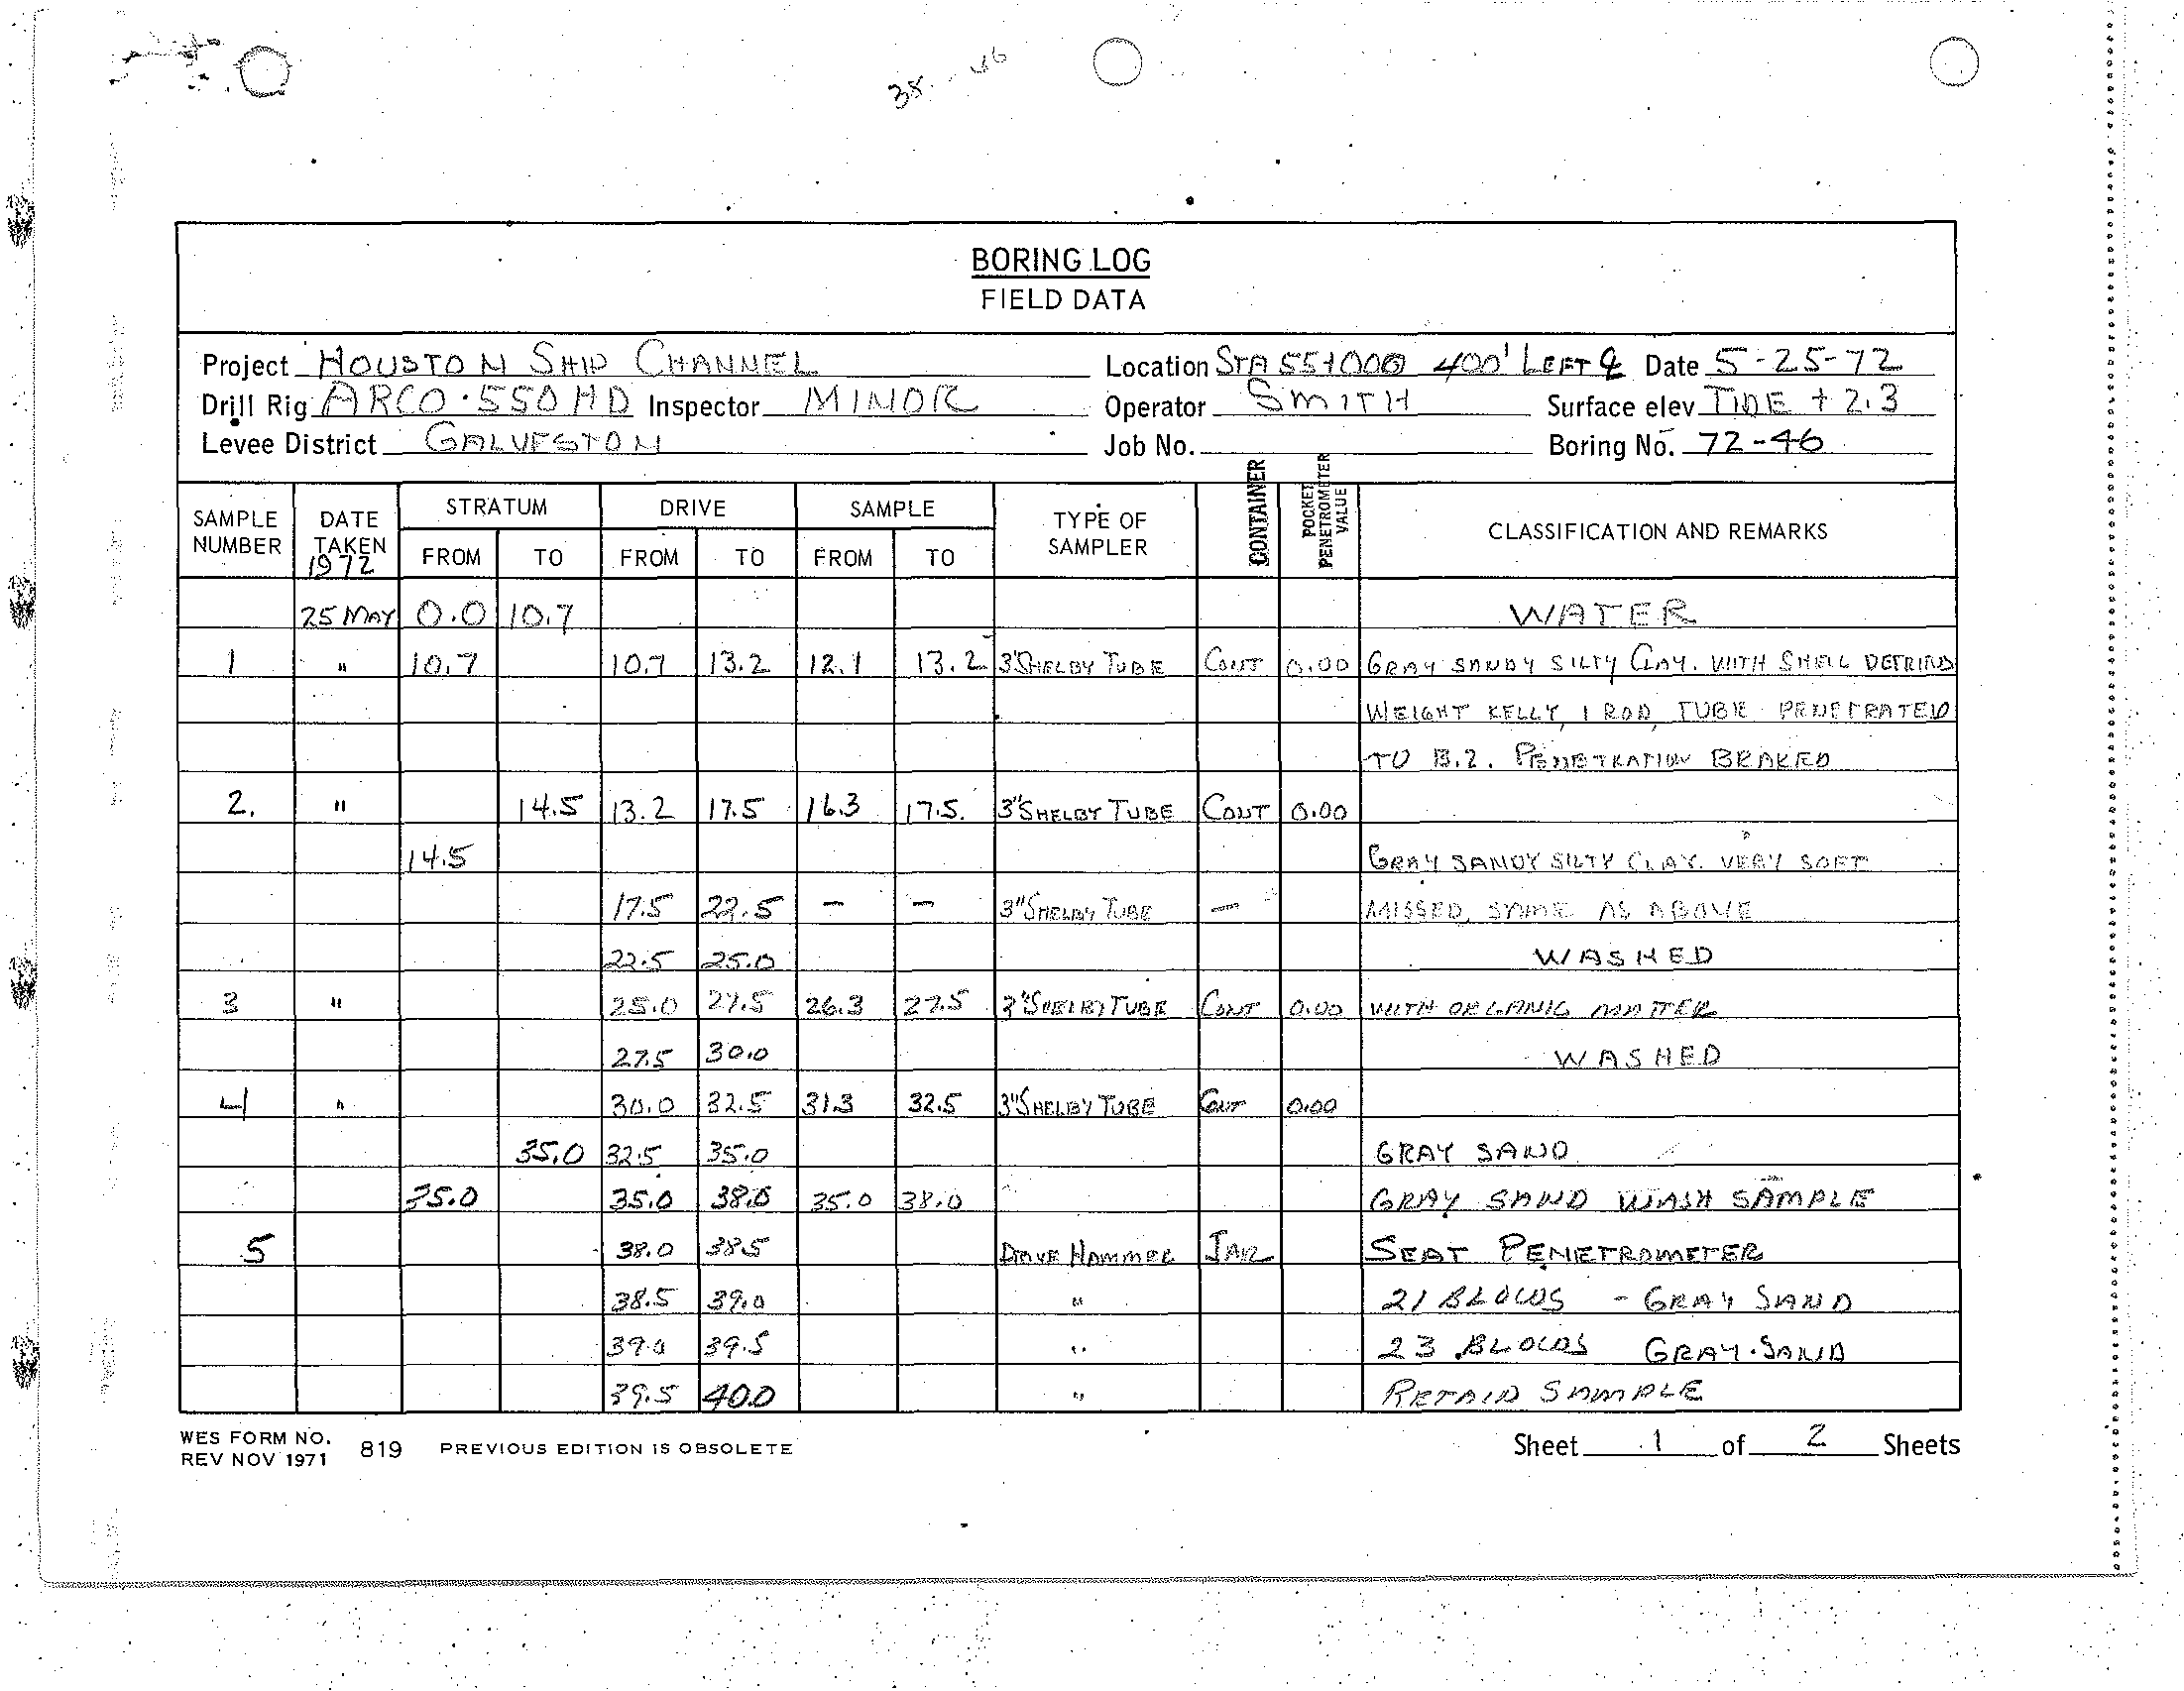 BORING LOG
FIELD DATA
Project HOUSTON SHIP CHANNEL Location STA 55+000 400' LEFT ℄ Date 5-25-72
Drill Rig ARCO·550 HD Inspector MINOR Operator SMITH Surface elev TIDE + 2.3
Levee District GALVESTON Job No. Boring No. 72-46
SAMPLE NUMBER DATE TAKEN 1972 STRATUM DRIVE SAMPLE TYPE OF SAMPLER CONTAINER POCKET PENETROMETER VALUE CLASSIFICATION AND REMARKS
FROM TO FROM TO FROM TO
25 MAY 0.0 10.7 WATER
1 " 10.7 10.7 13.2 12.1 13.2 3"SHELBY TUBE CONT 0.00 GRAY SANDY SILTY CLAY. WITH SHELL
WEIGHT KELLY, 1 ROD, TUBE PENETRATED
TO 13.2. PENETRATION BRAKED
2. " 14.5 13.2 17.5 16.3 17.5. 3"SHELBY TUBE CONT 0.00
14.5 GRAY SANDY SILTY CLAY. VERY SOFT
17.5 22.5 – – 3"SHELBY TUBE – MISSED, SAME AS ABOVE
22.5 25.0 WASHED
3 " 25.0 27.5 26.3 27.5 3"SHELBY TUBE CONT 0.00 WITH ORGANIC MATTER
27.5 30.0 WASHED
4 " 30.0 32.5 31.3 32.5 3"SHELBY TUBE CONT 0.00
35.0 32.5 35.0 GRAY SAND
35.0 35.0 38.0 35.0 38.0 GRAY SAND WASH SAMPLE
5 38.0 38.5 DRIVE HAMMER JAR SEAT PENETROMETER
38.5 39.0 " 21 BLOWS - GRAY SAND
39.0 39.5 " 23 BLOWS GRAY SAND
39.5 40.0 " RETAIN SAMPLE
WES FORM NO. 819 PREVIOUS EDITION IS OBSOLETE Sheet 1 of 2 Sheets
REV NOV 1971